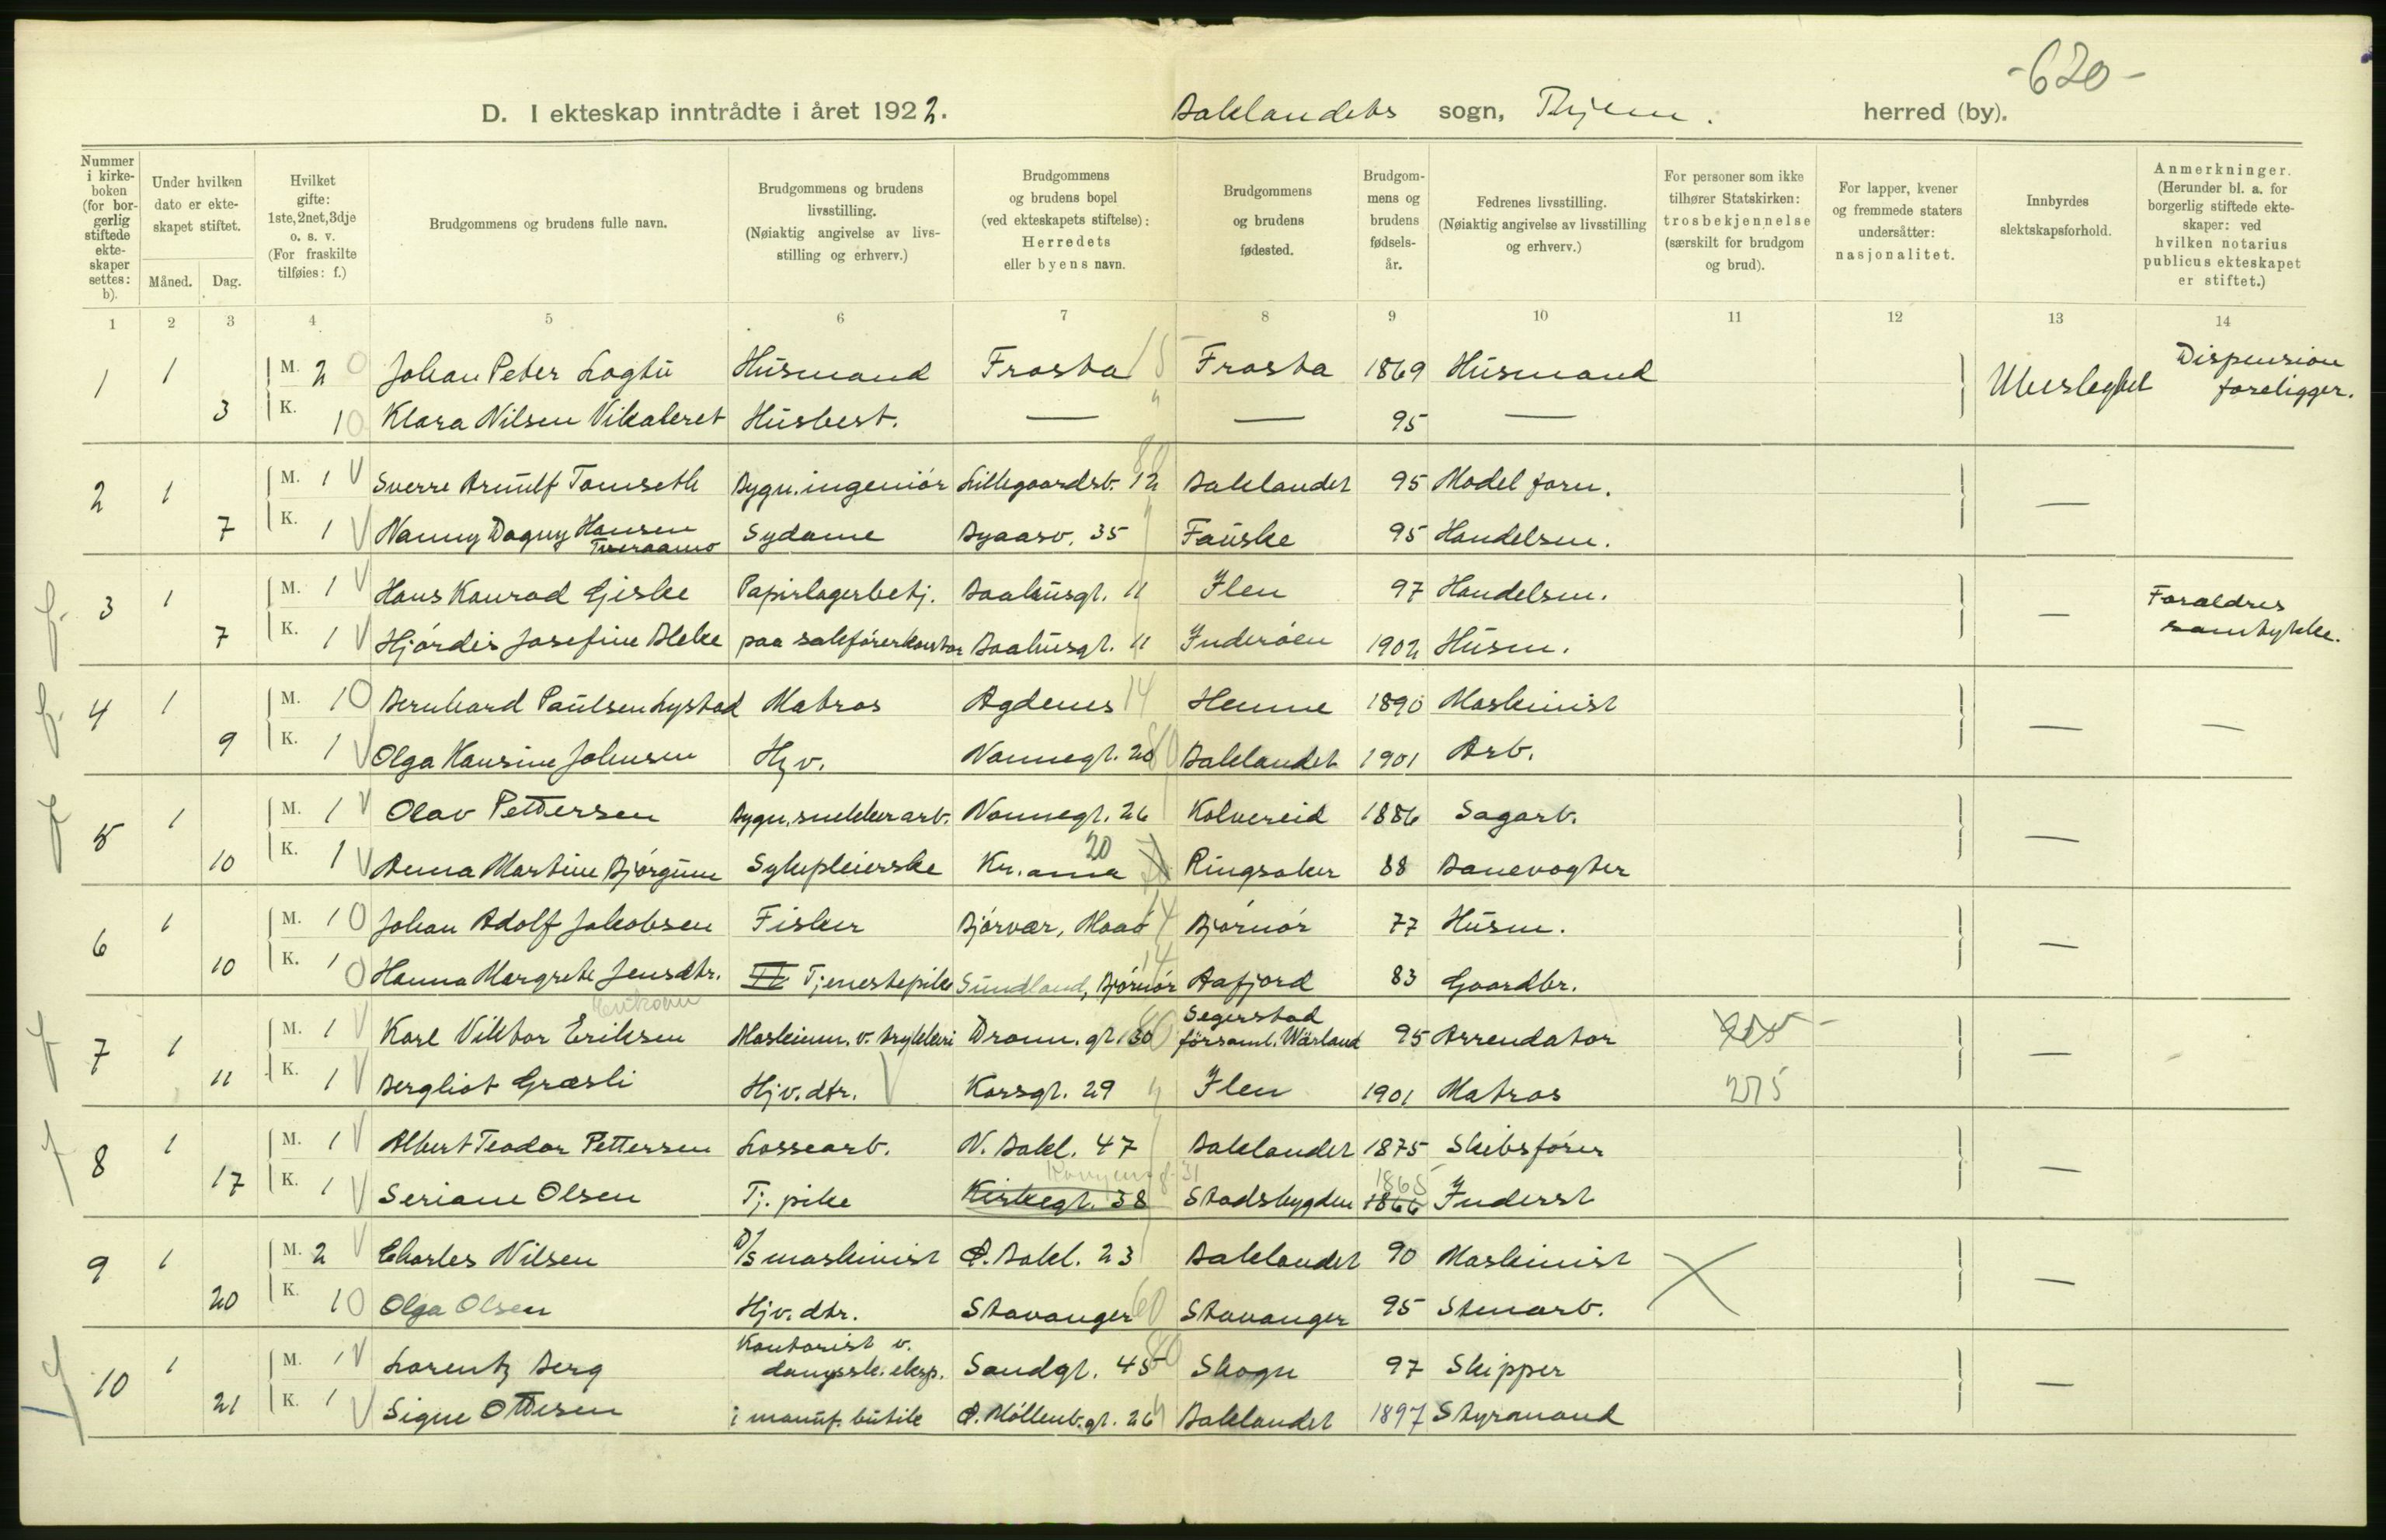 -620-
D. I ekteskap inntrådte i året 1922. Baklandets sogn, Thjem. herred (by).
Nummer i kirkeboken (for borgerlig stiftede ekteskaper settes: b).
Under hvilken dato er ekteskapet stiftet.
Måned. Dag.
Hvilket gifte: 1ste, 2net, 3dje o. s. v. (For fraskilte tilføies: f.)
Brudgommens og brudens fulle navn.
Brudgommens og brudens livsstilling. (Nøiaktig angivelse av livsstilling og erhverv.)
Brudgommens og brudens bopel (ved ekteskapets stiftelse): Herredets eller byens navn.
Brudgommens og brudens fødested.
Brudgommens og brudens fødselsår.
Fedrenes livsstilling. (Nøiaktig angivelse av livsstilling og erhverv.)
For personer som ikke tilhører Statskirken: trosbekjennelse (særskilt for brudgom og brud).
For lapper, kvener og fremmede staters undersåtter: nasjonalitet.
Innbyrdes slektskapsforhold.
Anmerkninger. (Herunder bl. a. for borgerlig stiftede ekteskaper: ved hvilken notarius publicus ekteskapet er stiftet.)
1 2 3 4 5 6 7 8 9 10 11 12 13 14
1 1 M. 2 0 Johan Peter Logtu Husmand Frosta 15 Frosta 1869 Husmand Ubeslegtet Dispension foreligger.
3 K. 1 0 Klara Nilsen Vikaleret Husbest. — " — 95 —
2 1 M. 1 V Sverre Arnulf Tomseth Bygn.ingeniør Lillegaardsb. 12 80 Baklandet 95 Model form. —
7 K. 1 V Nanny Dagny Hansen Tveraamo Sydame Byaasv. 35 " Fauske 95 Handelsm.
f. 3 1 M. 1 V Hans Konrad Giske Papirlagerbetj. Baahusgt. 11 Ilen 97 Handelsm. — Foreldres samtykke.
7 K. 1 V Hjørdis Josefine Bleke paa sakførerkontor Baahusgt. 11 Inderøen 1902 Husm.
f. 4 1 M. 1 0 Bernhard Paulsen Lystad Matros Agdenes 14 Hemne 1890 Maskinist — —
9 K. 1 V Olga Hansine Johnsen Hjv. Nonnegt. 20 80 Baklandet 1901 Arb.
f 5 1 M. 1 V Olav Pettersen Bygn.snekkerarb. Nonnegt. 26 Kolvereid 1886 Sagarb. —
10 K. 1 V Anna Martine Bjørgum Sykepleierske Kr.ania 20 Ringsaker 88 Banevogter
6 1 M. 1 0 Johan Adolf Jakobsen Fisker Bjørvær, Maaø 14 Bjørnør 77 Husm. —
10 K. 1 0 Hanna Margrete Jensdtr. Tjenestepike Sundland, Bjørnør 14 Aafjord 83 Gaardbr.
f 7 1 M. 1 V Karl Viktor Eriksen Maskinm. v. trykkeri Dronn.gt. 30 80 Segerstad församl. Wärland 95 Arrendator —
11 K. 1 V Bergliot Græsli Hjv.dtr. V Korsgt. 29 " Ilen 1901 Matros 275
f 8 1 M. 1 V Albert Teodor Pettersen Lossearb. N. Bakl. 47 Baklandet 1875 Skibsfører —
17 K. 1 V Seriane Olsen Tj. pike Kirkegt. 38 31 Stadsbygden 1866 1865 Inderst
9 1 M. 2 V Charles Nilsen D/S maskinist Ø. Bakl. 23 Baklandet 90 Maskinist X —
20 K. 1 0 Olga Olsen Hjv. dtr. Stavanger 60 Stavanger 95 Stenarb.
f 10 1 M. 1 V Lorentz Berg Kontorist v. dampssk. eksp. Sandgt. 45 80 Skogn 97 Skipper —
21 K. 1 V Signe Ottesen i manuf. butik Ø. Møllenb.gt. 26 " Baklandet 1897 Styrmand